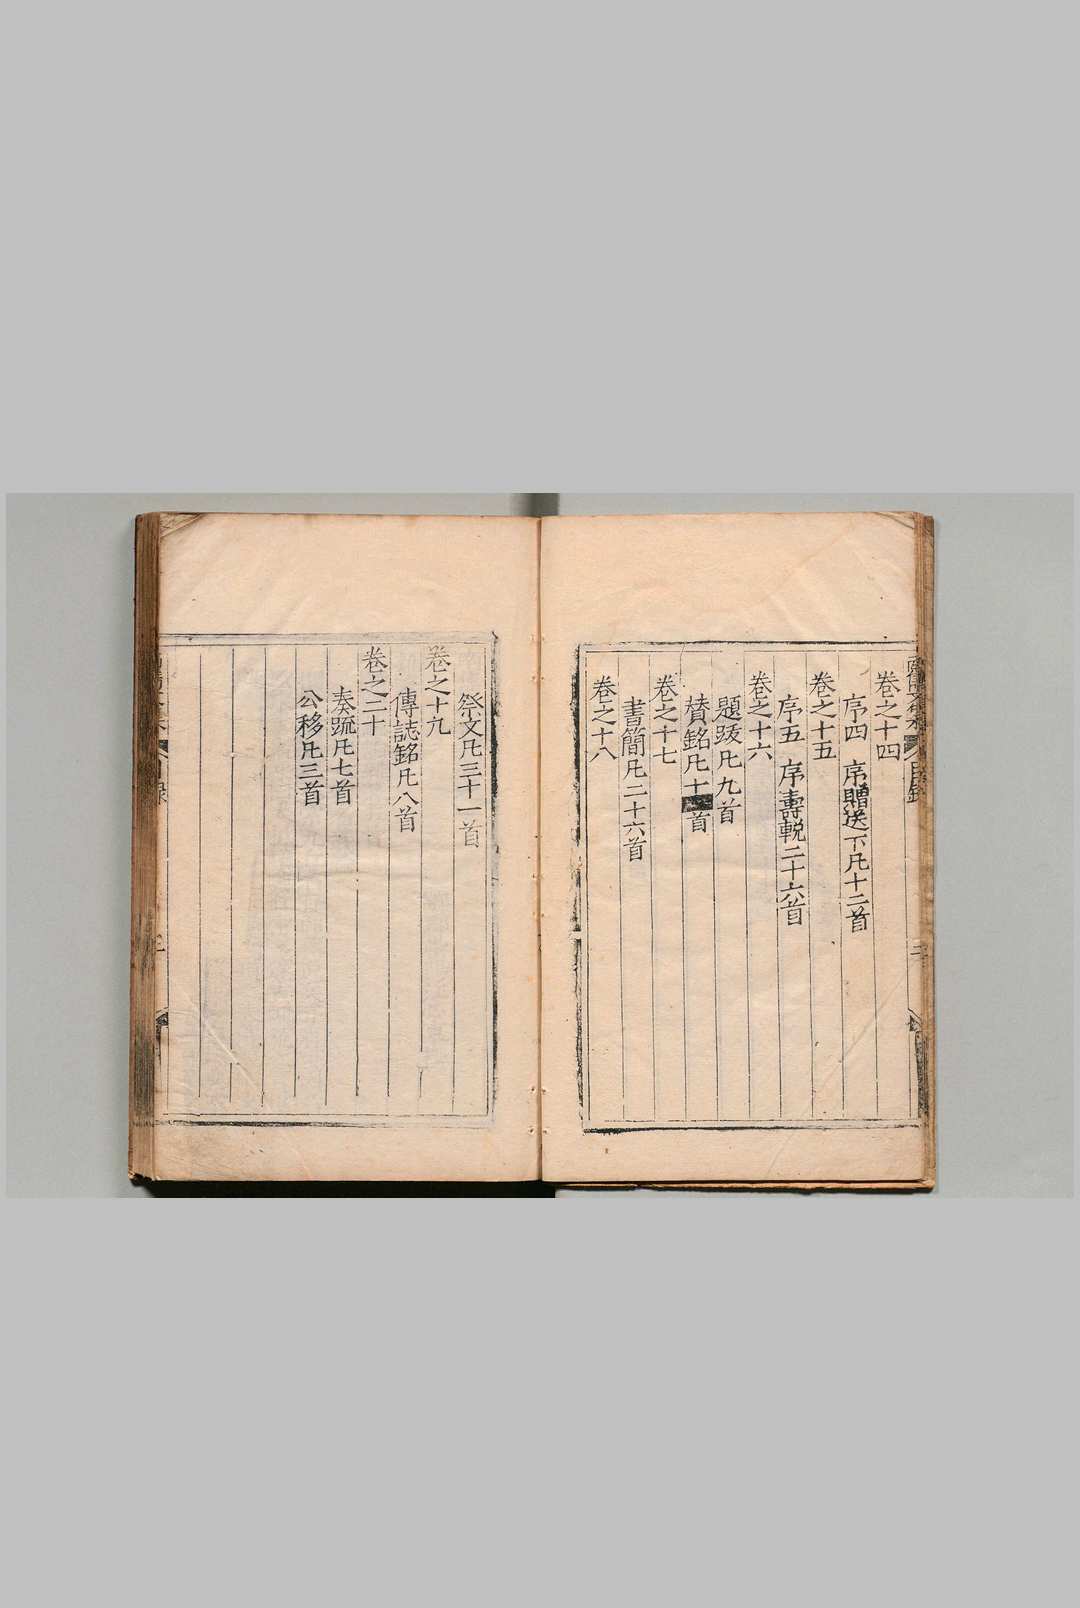 卷之十四
序四 序贈送下凡十二首
卷之十五
序五 序壽輓二十六首
卷之十六
題䟦凡九首
賛銘凡十首
卷之十七
書簡凡二十六首
卷之十八
祭文凡三十一首
卷之十九
傳誌銘凡八首
卷之二十
奏疏凡七首
公移凡三首